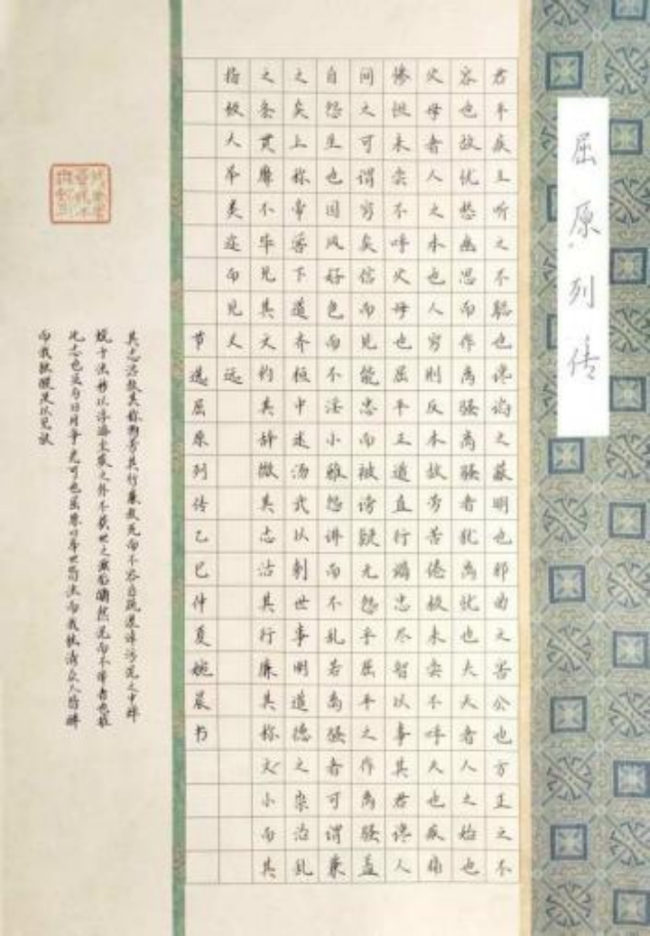 屈原列传
君平疾王听之不聪也谗谄之蔽明也邪曲之害公也方正之不
容也故忧愁幽思而作离骚离骚者犹离忧也夫天者人之始也
父母者人之本也人穷则反本故劳苦倦极未尝不呼天也疾痛
惨怛未尝不呼父母也屈平正道直行竭忠尽智以事其君谗人
间之可谓穷矣信而见能忠而被谤疑无怨乎屈平之作离骚盖
自怨生也国风好色而不淫小雅怨诽而不乱若离骚者可谓兼
之矣上称帝喾下道齐桓中述汤武以刺世事明道德之崇治乱
之条贯靡不毕见其文约其辞微其志洁其行廉其称文小而其
指极大举类迩而见义远
节选屈原列传乙巳仲夏婉晨书
其志洁故其称物芳其行廉故死而不容自疏濯淖污泥之中蝉
蜕于浊秽以浮游尘埃之外不获世之滋垢皭然泥而不滓者也推
此志也虽与日月争光可也屈原曰举世皆浊而我独清众人皆醉
而我独醒是以见放